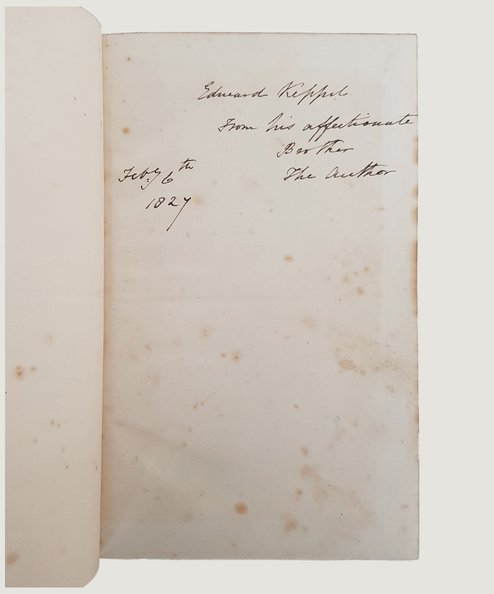 Edward Keppel
From his affectionate
Brother
The Author
Feby 6th
1827